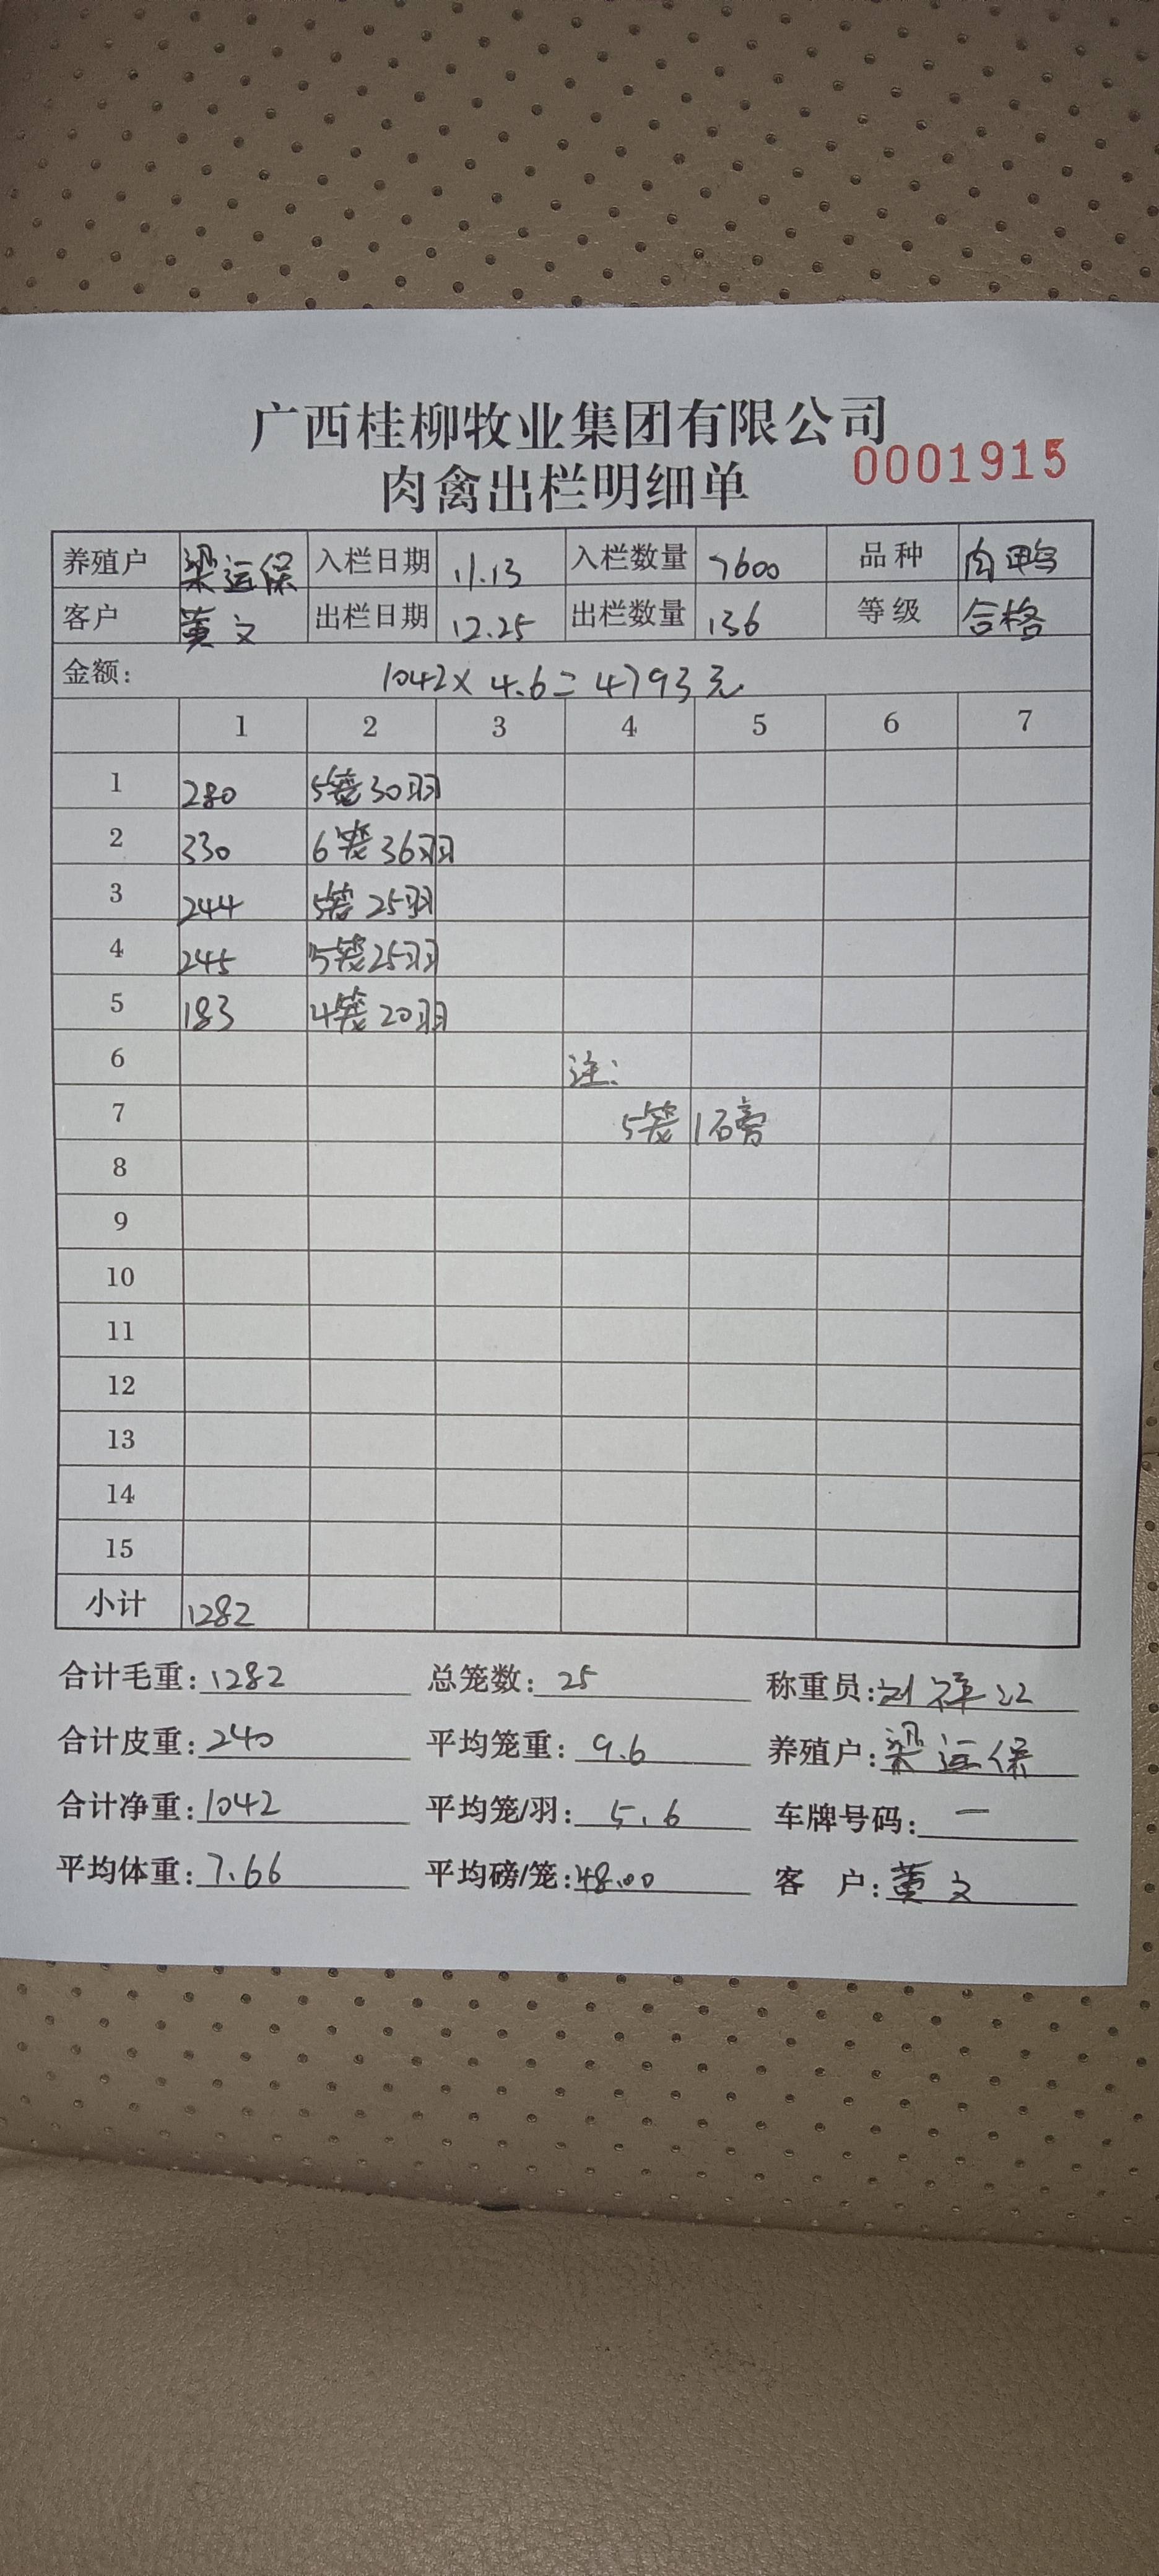 广西桂柳牧业集团有限公司
肉禽出栏明细单 0001915
养殖户 梁运保 入栏日期 11.13 入栏数量 7600 品种 肉鸭
客户 黄文 出栏日期 12.25 出栏数量 136 等级 合格
金额: 1042×4.6=4793元
1 2 3 4 5 6 7
1 280 5笼30羽
2 330 6笼36羽
3 244 5笼25羽
4 245 5笼25羽
5 183 4笼20羽
6 注:
7 5笼1磅
8
9
10
11
12
13
14
15
小计 1282
合计毛重:1282 总笼数:25 称重员:刘祥江
合计皮重:240 平均笼重:9.6 养殖户:梁运保
合计净重:1042 平均笼/羽:5.6 车牌号码:一
平均体重:7.66 平均磅/笼:48.00 客户:黄文